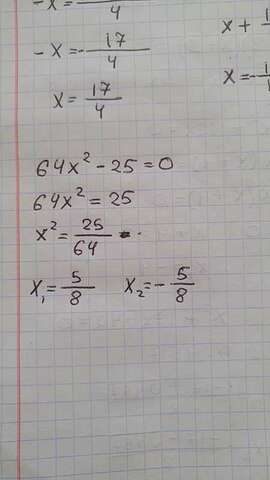 -x = ―/4
-x = -17/4
x = 17/4
x + 1
x = -1
64x² - 25 = 0
64x² = 25
x² = 25/64
x₁ = 5/8 x₂ = -5/8